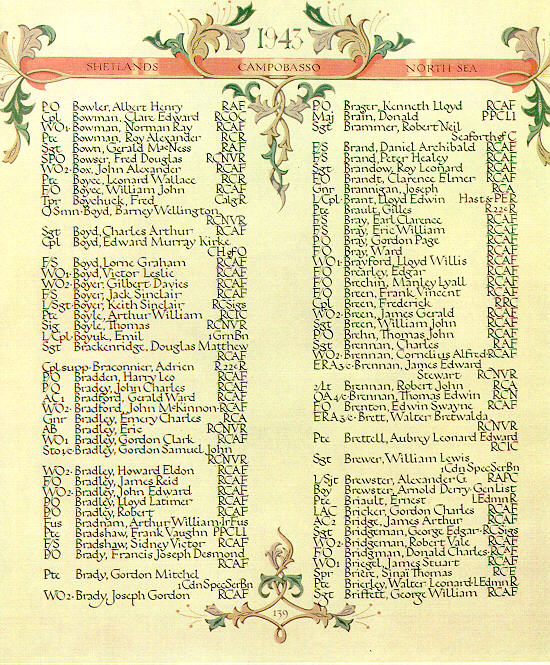 1943
SHETLANDS CAMPOBASSO NORTH SEA
P/O Bowler, Albert Henry RAF
Cpl Bowman, Clare Edward RCOC
WO1 Bowman, Norman Ray RCAF
Pte Bowman, Roy Alexander RCR
Sgt Bown, Gerald MacNess RAF
SPO Bowser, Fred Douglas RCNVR
WO2 Box, John Alexander RCAF
Pte Boyce, Leonard Wallace RCR
F/O Boyce, William John RCAF
Tpr Boychuck, Fred CalgR
O Smn Boyd, Barney Wellington
RCNVR
Sgt Boyd, Charles Arthur RCAF
Cpl Boyd, Edward Murray Kirke
CH of O
F/S Boyd, Lorne Graham RCAF
WO1 Boyd, Victor Leslie RCAF
WO2 Boyer, Gilbert Davies RCAF
F/S Boyer, Jack Sinclair RCAF
L/Sgt Boyer, Keith Sinclair RCSigs
Pte Boyle, Arthur William RCIC
Sig Boyle, Thomas RCNVR
L/Cpl Boyuk, Emil 1GrnBn
Sgt Brackenridge, Douglas Matthew
RCAF
Cpl supp Braconnier, Adrien R22eR
P/O Bradden, Harry Leo RCAF
P/O Bradey, John Charles RCAF
AC1 Bradford, Gerald Ward RCAF
WO2 Bradford, John McKinnon RCAF
Gnr Bradley, Emery Charles RCA
AB Bradley, Eric RCNVR
WO1 Bradley, Gordon Clark RCAF
Sto1c Bradley, Gordon Samuel John
RCNVR
WO2 Bradley, Howard Eldon RCAF
F/O Bradley, James Reid RCAF
WO2 Bradley, John Edward RCAF
P/O Bradley, Lloyd Latimer RCAF
P/O Bradley, Robert RCAF
Fus Bradnam, Arthur William IrFus
Pte Bradshaw, Frank Vaughn PPCLI
F/S Bradshaw, Sidney Victor RCAF
P/O Brady, Francis Joseph Desmond
RCAF
Pte Brady, Gordon Mitchel
1CdnSpecSerBn
WO2 Brady, Joseph Gordon RCAF
P/O Brager, Kenneth Lloyd RCAF
Maj Brain, Donald PPCLI
Sgt Brammer, Robert Neil
Seaforth of C
F/S Brand, Daniel Archibald RCAF
F/S Brand, Peter Healey RCAF
Sgt Brandow, Roy Leonard RCAF
F/O Brandt, Clarence Elmer RCAF
Gnr Brannigan, Joseph RCA
L/Cpl Brant, Lloyd Edwin Hast&PER
Pte Brault, Gilles R22eR
F/S Bray, Earl Clarence RCAF
F/S Bray, Eric William RCAF
P/O Bray, Gordon Page RCAF
F/O Bray, Ward RCAF
WO1 Brayford, Lloyd Willis RCAF
F/O Brearley, Edgar RCAF
F/O Brechin, Manley Lyall RCAF
F/O Breen, Frank Vincent RCAF
Cpl Breen, Frederick RRC
WO2 Breen, James Gerald RCAF
Sgt Breen, William John RCAF
P/O Brehn, Thomas John RCAF
Sgt Brennan, Charles RAE
WO2 Brennan, Cornelius Alfred RCAF
ERA3/c Brennan, James Edward
Stewart RCNVR
2/Lt Brennan, Robert John RCA
OA4/c Brennan, Thomas Edwin RCN
F/O Brenton, Edwin Swayne RCAF
ERA3/c Brett, Walter Bretwalda
RCNVR
Pte Brettell, Aubrey Leonard Edward
RCIC
Sgt Brewer, William Lewis
1CdnSpecSerBn
L/Sjt Brewster, Alexander G. RAPC
Boy Brewster, Arnold Derry GenList
Pte Briault, Ernest LEdmnR
LAC Bricker, Gordon Charles RCAF
AC2 Bridge, James Arthur RCAF
Sgt Bridgeman, George Edgar RCSigs
WO2 Bridgman, Robert Vale RCAF
F/O Bridgman, Donald Charles RCAF
WO1 Briegel, James Stuart RCAF
Spr Brière, Sinai Thomas RCE
Pte Brierley, Walter Leonard LEdmnR
Sgt Briffett, George William RCAF
139